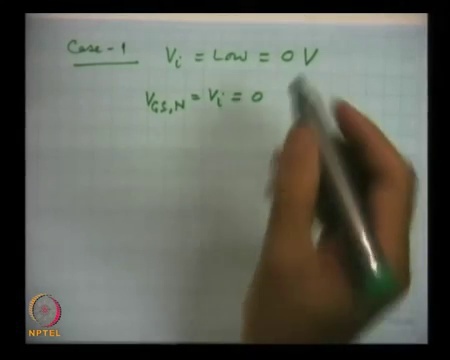 Case-1 Vi = Low = 0 V
VGS,N = Vi = 0
NPTEL